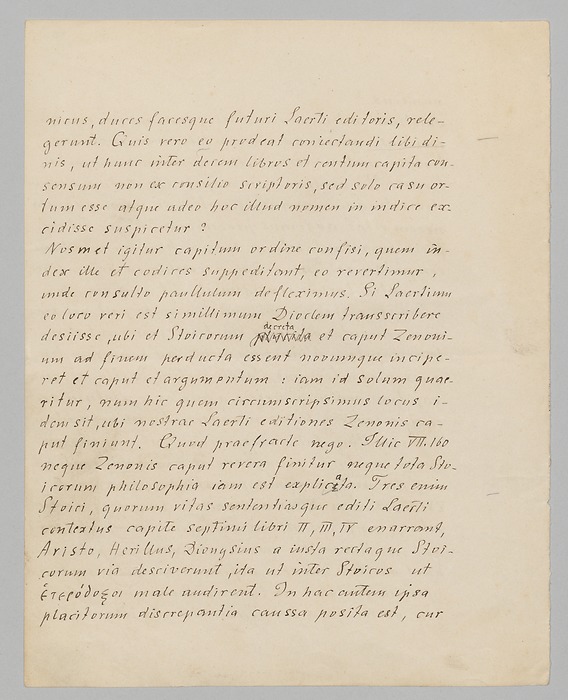 nicus, duces facesque futuri Laerti editoris, rele-
gerunt. Quis vero eo prodeat coniectandi libidi-
nis, ut hunc inter decem libros et centum capita con-
sensum non ex consilio scriptoris, sed solo casu or-
tum esse atque adeo hoc illud nomen in indice ex-
cidisse suspicetur?
Nosmet igitur capitum ordine confisi, quem in-
dex ille et codices suppeditant, eo revertimur,
unde consulto paullulum defleximus. Si Laertium
eo loco veri est simillimum Dioclem transscribere
decreta
desiisse, ubi et Stoicorum placita et caput Zenoni-
um ad finem perducta essent novumque incipe-
ret et caput et argumentum: iam id solum quae-
ritur, num hic quem circumscripsimus locus i-
dem sit, ubi nostrae Laerti editiones Zenonis ca-
put finiunt. Quod praefracte nego. Illic VII. 160
neque Zenonis caput revera finitur neque tota Sto-
icorum philosophia iam est explicata. Tres enim
Stoici, quorum vitas sententiasque editi Laerti
contextus capite septimi libri II, III, IV enarrant,
Aristo, Herillus, Dionysius a iusta rectaque Stoi-
corum via desciverunt, ita ut inter Stoicos ut
ἑτερόδοξοι male audirent. In hac autem ipsa
placitorum discrepantia caussa posita est, cur